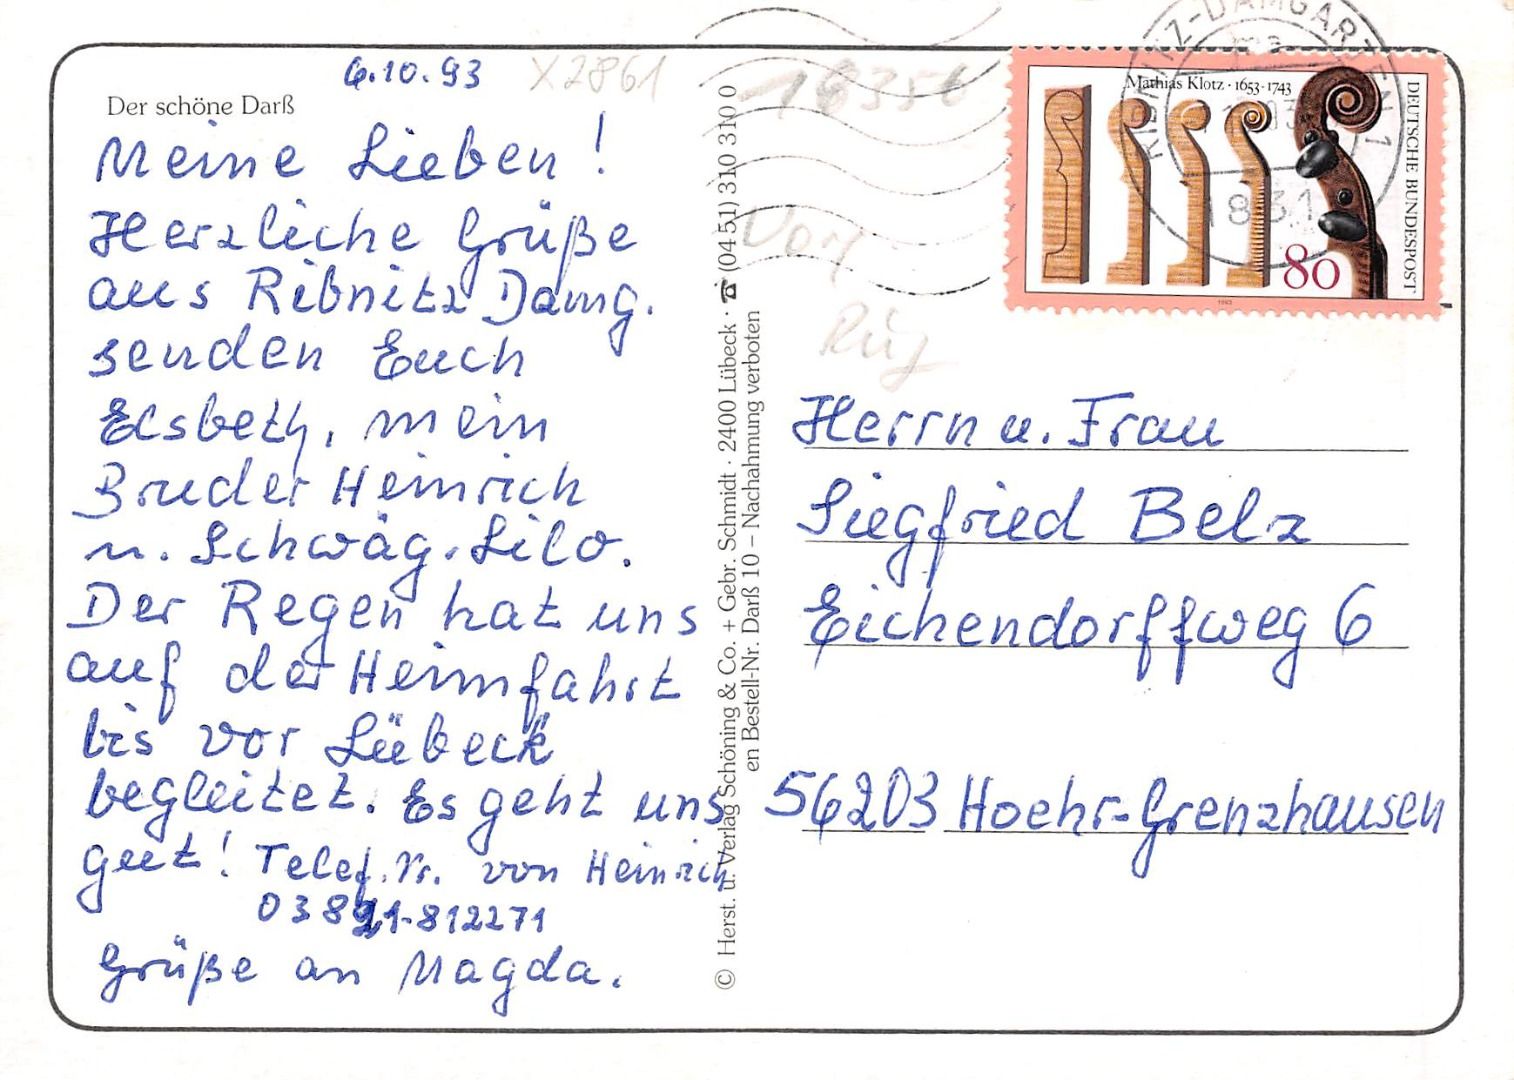 6.10.93
X2861
18356
Der schöne Darß
Meine Lieben!
Herzliche Grüße
aus Ribnitz Damg.
senden Euch
Elsbeth, mein
Bruder Heinrich
u. Schwäg. Lilo.
Der Regen hat uns
auf der Heimfahrt
bis vor Lübeck
begleitet. Es geht uns
gut! Telef. Nr. von Heinrich
03821-812271
Grüße an Magda.
© Herst. u. Verlag Schöning & Co. + Gebr. Schmidt · 2400 Lübeck · ☎ (0451) 310 310 0
en Bestell-Nr. Darß 10 – Nachahmung verboten
Mathias Klotz · 1653-1743
DEUTSCHE BUNDESPOST
80
1993
RIBNITZ-DAMGARTEN 1
1831
Herrn u. Frau
Siegfried Belz
Eichendorffweg 6
56203 Hoehr-Grenzhausen